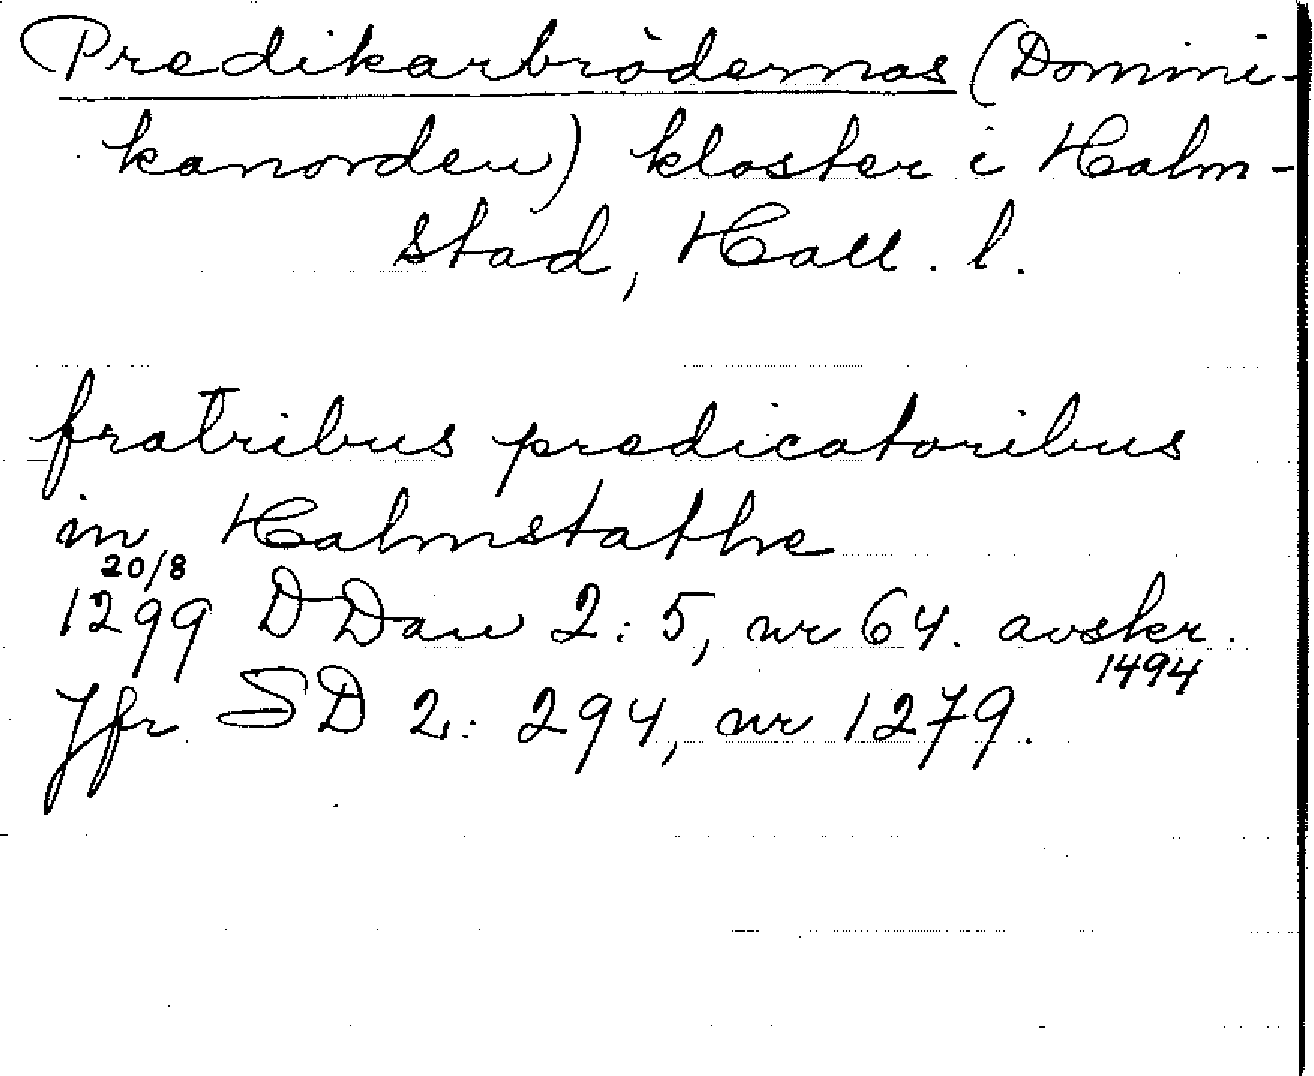 Predikarbrödernas (Domini-
kanorden) kloster i Halm-
stad, Hall. l.
fratribus predicatoribus
in Halmstathe
20/8
1299 DDan 2:5, nr 64. avskr.
1494
Jfr SD 2: 294, nr 1279.